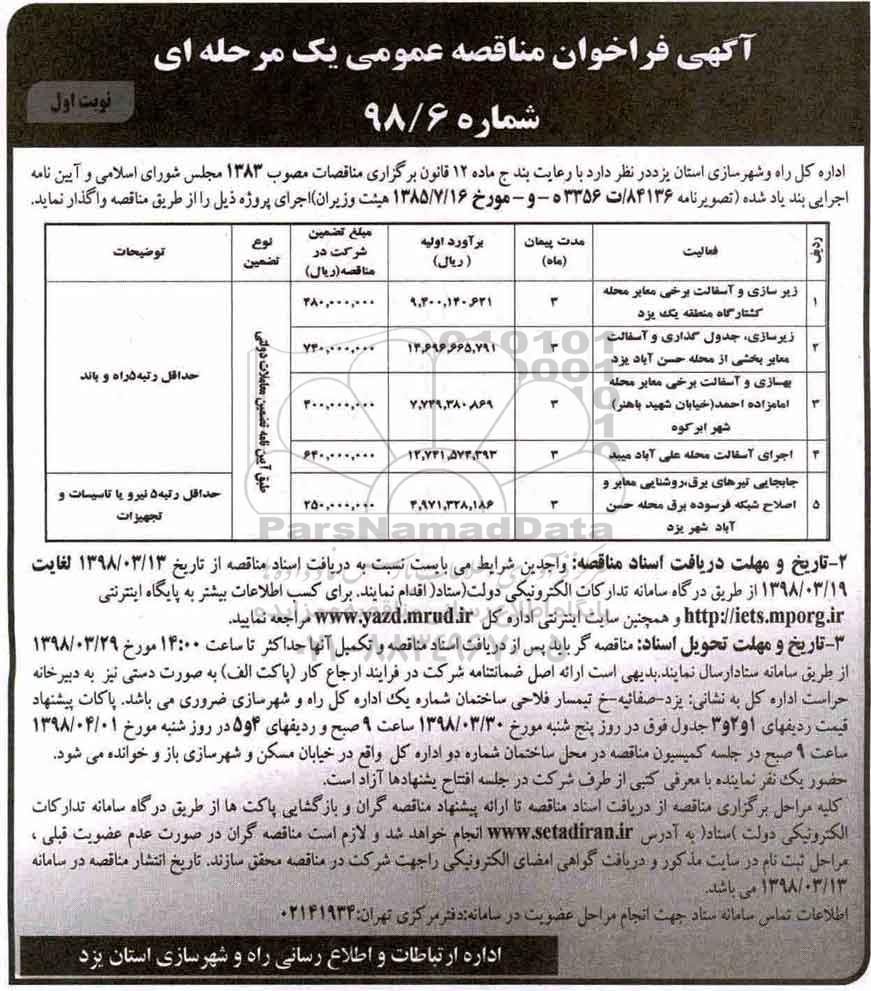 آگهی فراخوان مناقصه عمومی یک مرحله ای
شماره ۹۸/۶
نوبت اول
اداره کل راه وشهرسازی استان یزددر نظر دارد با رعایت بند ج ماده ۱۲ قانون برگزاری مناقصات مصوب ۱۳۸۳ مجلس شورای اسلامی و آیین نامه
اجرایی بند یاد شده (تصویرنامه ۸۴۱۳۶/ت ۳۳۵۶ ه – و – مورخ ۱۳۸۵/۷/۱۶ هیئت وزیران)اجرای پروژه ذیل را از طریق مناقصه واگذار نماید.
ردیف فعالیت مدت پیمان (ماه) برآورد اولیه (ریال) مبلغ تضمین شرکت در مناقصه(ریال) نوع تضمین توضیحات
۱ زیر سازی و آسفالت برخی معابر محله کشتارگاه منطقه یک یزد ۳ ۹,۴۰۰,۱۴۰,۶۲۱ ۴۸۰,۰۰۰,۰۰۰
۲ زیرسازی، جدول گذاری و آسفالت معابر بخشی از محله حسن آباد یزد ۳ ۱۴,۶۹۶,۶۶۵,۷۹۱ ۷۴۰,۰۰۰,۰۰۰
۳ بهسازی و آسفالت برخی معابر محله امامزاده احمد(خیابان شهید باهنر) شهر ابرکوه ۳ ۷,۷۴۹,۳۸۰,۸۶۹ ۴۰۰,۰۰۰,۰۰۰
۴ اجرای آسفالت محله علی آباد میبد ۳ ۱۲,۷۴۱,۵۷۴,۳۹۳ ۶۴۰,۰۰۰,۰۰۰
۵ جابجایی تیرهای برق،روشنایی معابر و اصلاح شبکه فرسوده برق محله حسن آباد شهر یزد ۳ ۴,۹۷۱,۳۲۸,۱۸۶ ۲۵۰,۰۰۰,۰۰۰
طبق آیین نامه تضمین معاملات دولتی
حداقل رتبه۵راه و باند
حداقل رتبه۵ نیرو یا تاسیسات و تجهیزات
ParsNamadData
۲-تاریخ و مهلت دریافت اسناد مناقصه: واجدین شرایط می بایست نسبت به دریافت اسناد مناقصه از تاریخ ۱۳۹۸/۰۳/۱۳ لغایت
۱۳۹۸/۰۳/۱۹ از طریق درگاه سامانه تدارکات الکترونیکی دولت(ستاد( اقدام نمایند. برای کسب اطلاعات بیشتر به پایگاه اینترنتی
http://iets.mporg.ir و همچنین سایت اینترنتی اداره کل www.yazd.mrud.ir مراجعه نمایید.
۳-تاریخ و مهلت تحویل اسناد: مناقصه گر باید پس از دریافت اسناد مناقصه و تکمیل آنها حداکثر تا ساعت ۱۴:۰۰ مورخ ۱۳۹۸/۰۳/۲۹
از طریق سامانه ستادارسال نمایند.بدیهی است ارائه اصل ضمانتنامه شرکت در فرایند ارجاع کار (پاکت الف) به صورت دستی نیز به دبیرخانه
حراست اداره کل به نشانی: یزد-صفائیه-خ تیمسار فلاحی ساختمان شماره یک اداره کل راه و شهرسازی ضروری می باشد. پاکات پیشنهاد
قیمت ردیفهای ۱و۲و۳ جدول فوق در روز پنج شنبه مورخ ۱۳۹۸/۰۳/۳۰ ساعت ۹ صبح و ردیفهای ۴و۵ در روز شنبه مورخ ۱۳۹۸/۰۴/۰۱
ساعت ۹ صبح در جلسه کمیسیون مناقصه در محل ساختمان شماره دو اداره کل واقع در خیابان مسکن و شهرسازی باز و خوانده می شود.
حضور یک نفر نماینده با معرفی کتبی از طرف شرکت در جلسه افتتاح پشنهادها آزاد است.
کلیه مراحل برگزاری مناقصه از دریافت اسناد مناقصه تا ارائه پیشنهاد مناقصه گران و بازگشایی پاکت ها از طریق درگاه سامانه تدارکات
الکترونیکی دولت )ستاد( به آدرس www.setadiran.ir انجام خواهد شد و لازم است مناقصه گران در صورت عدم عضویت قبلی ،
مراحل ثبت نام در سایت مذکور و دریافت گواهی امضای الکترونیکی راجهت شرکت در مناقصه محقق سازند. تاریخ انتشار مناقصه در سامانه
۱۳۹۸/۰۳/۱۳ می باشد.
اطلاعات تماس سامانه ستاد جهت انجام مراحل عضویت در سامانه:دفترمرکزی تهران:۰۲۱۴۱۹۳۴
اداره ارتباطات و اطلاع رسانی راه و شهرسازی استان یزد